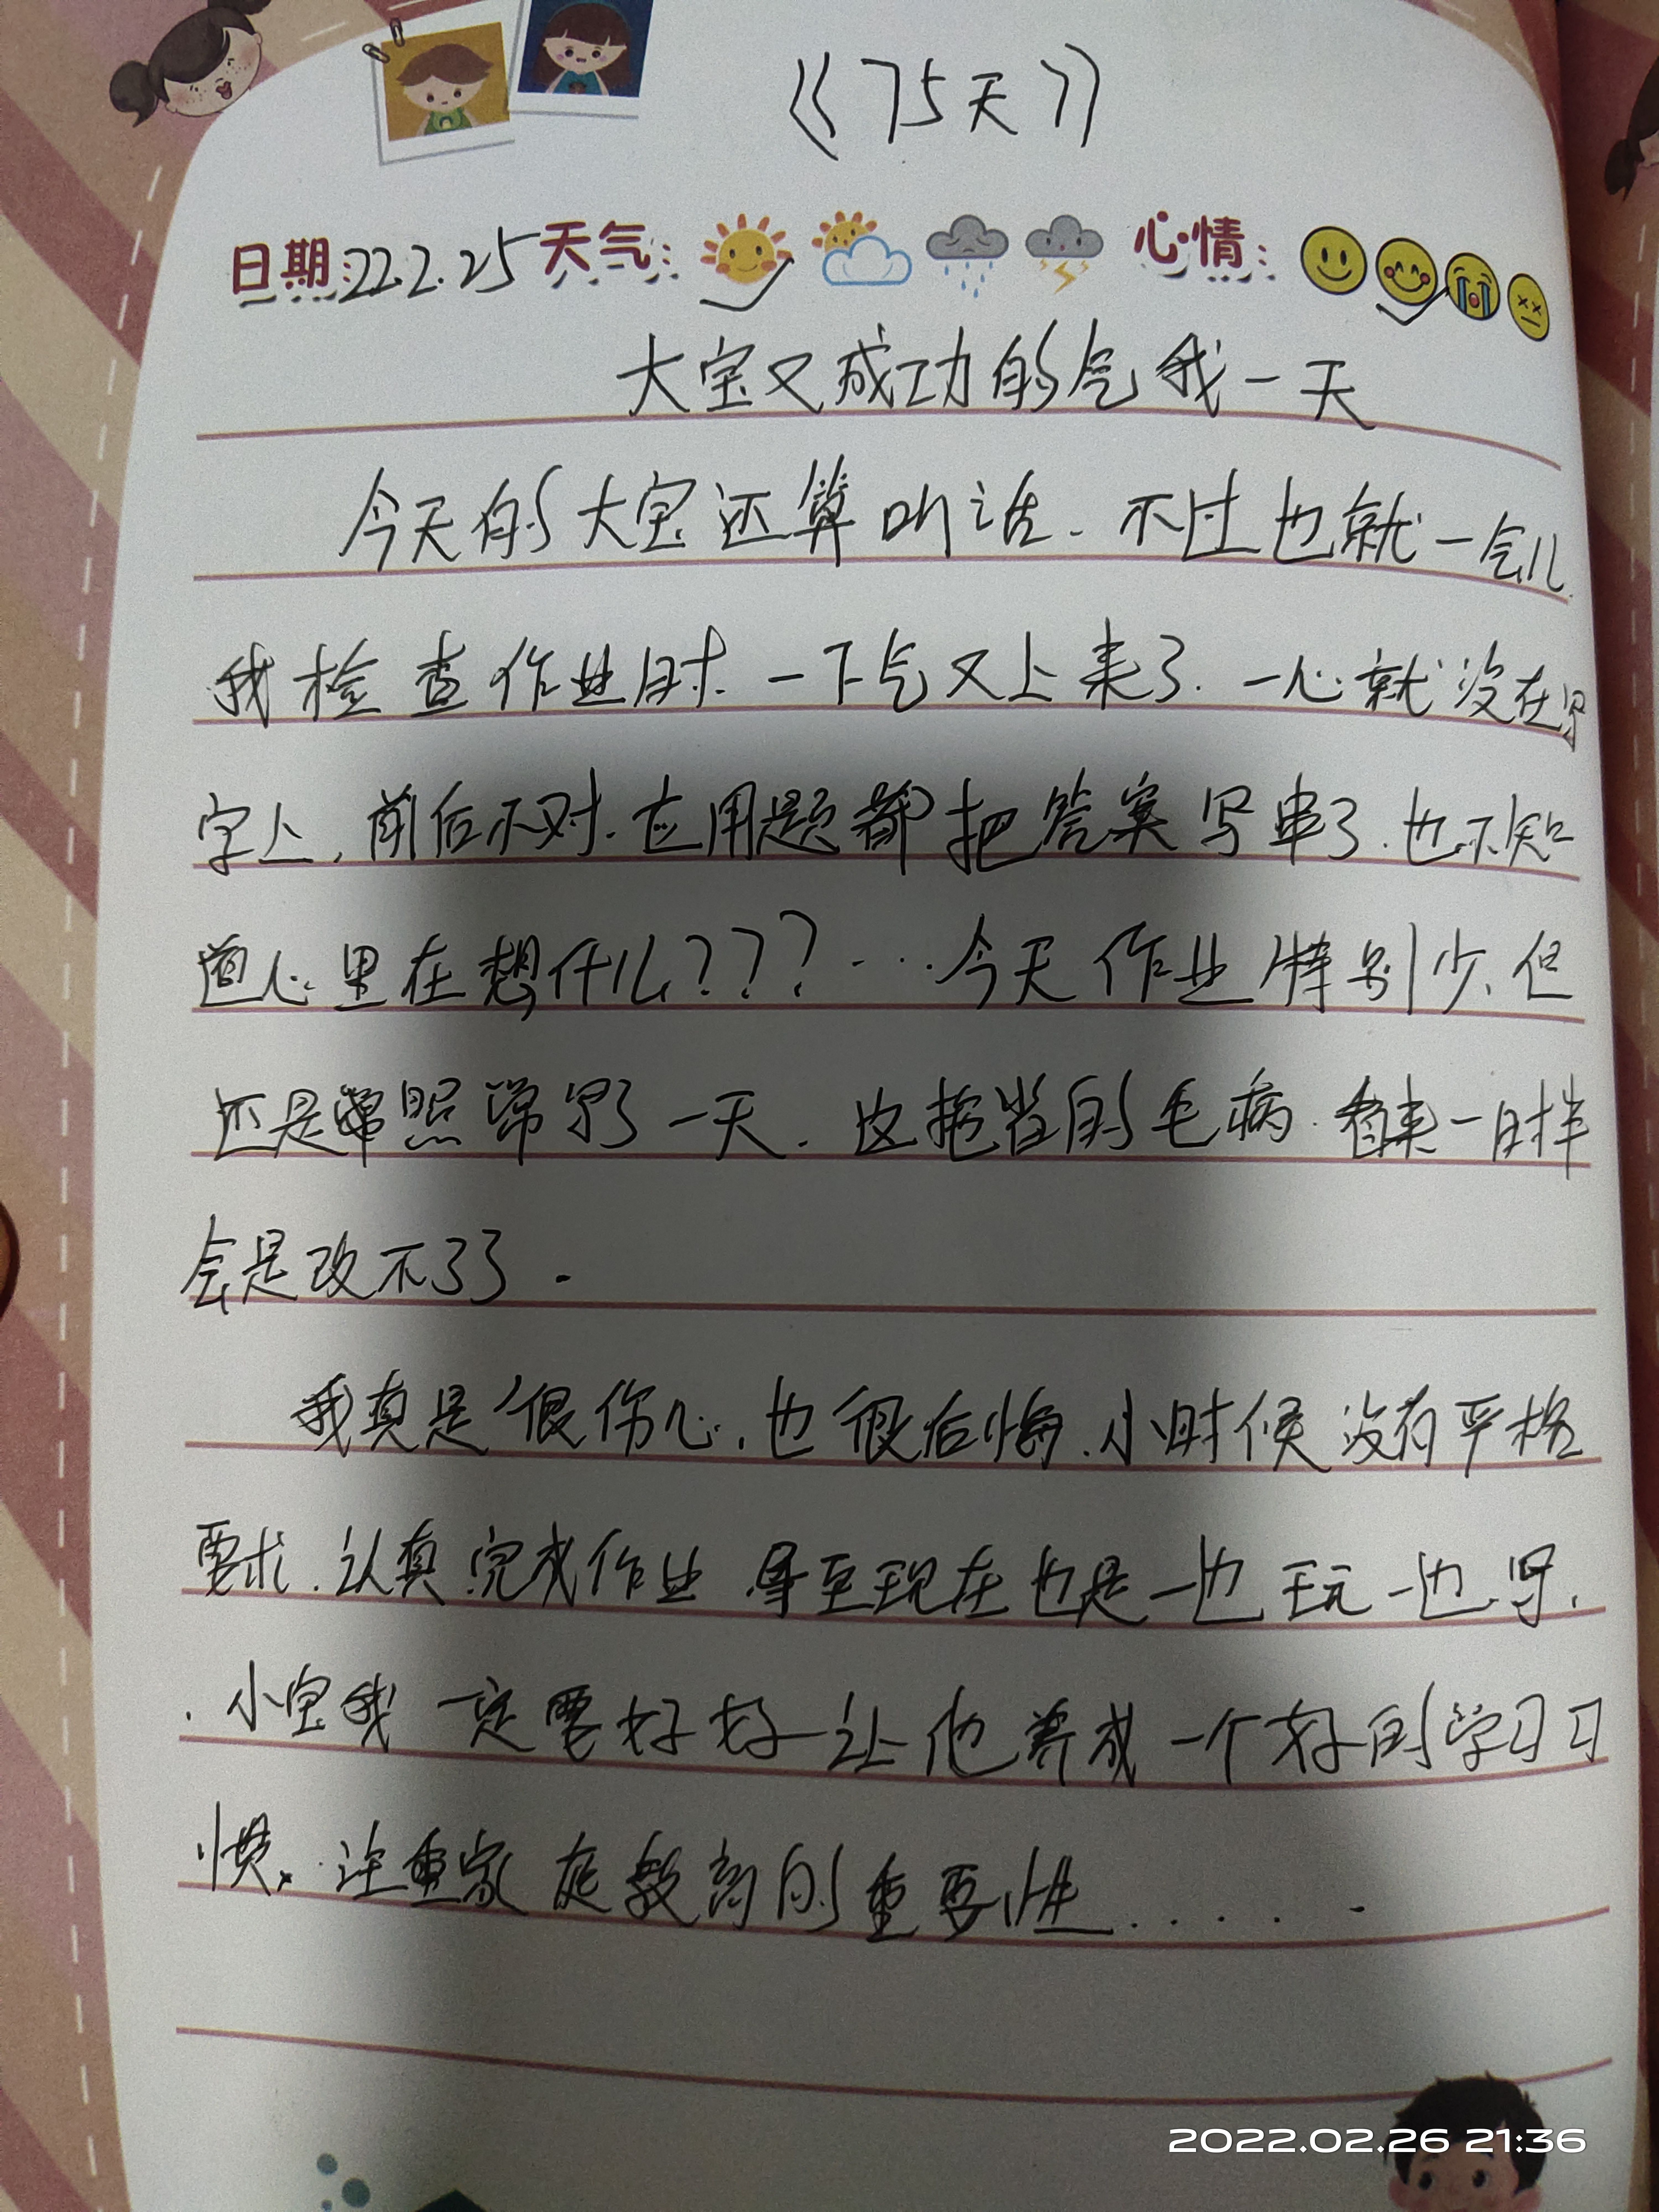 《75天》
日期:22.2.25 天气: 心情:
大宝又成功的气我一天
今天的大宝还算听话.不过也就一会儿.
我检查作业时.一下气又上来了.一心就没在写
字上,前后不对.应用题都把答案写串了.也不知
道心里在想什么???……今天作业特别少、但
还是常照常写了一天.这拖拉的毛病.看来一时半
会是改不了了.
我真是很伤心,也很后悔.小时候没有严格
要求.认真完成作业 导至现在也是一边玩一边写.
.小宝我一定要好好让他养成一个好的学习习
惯.注重家庭教育的重要性......
2022.02.26 21:36